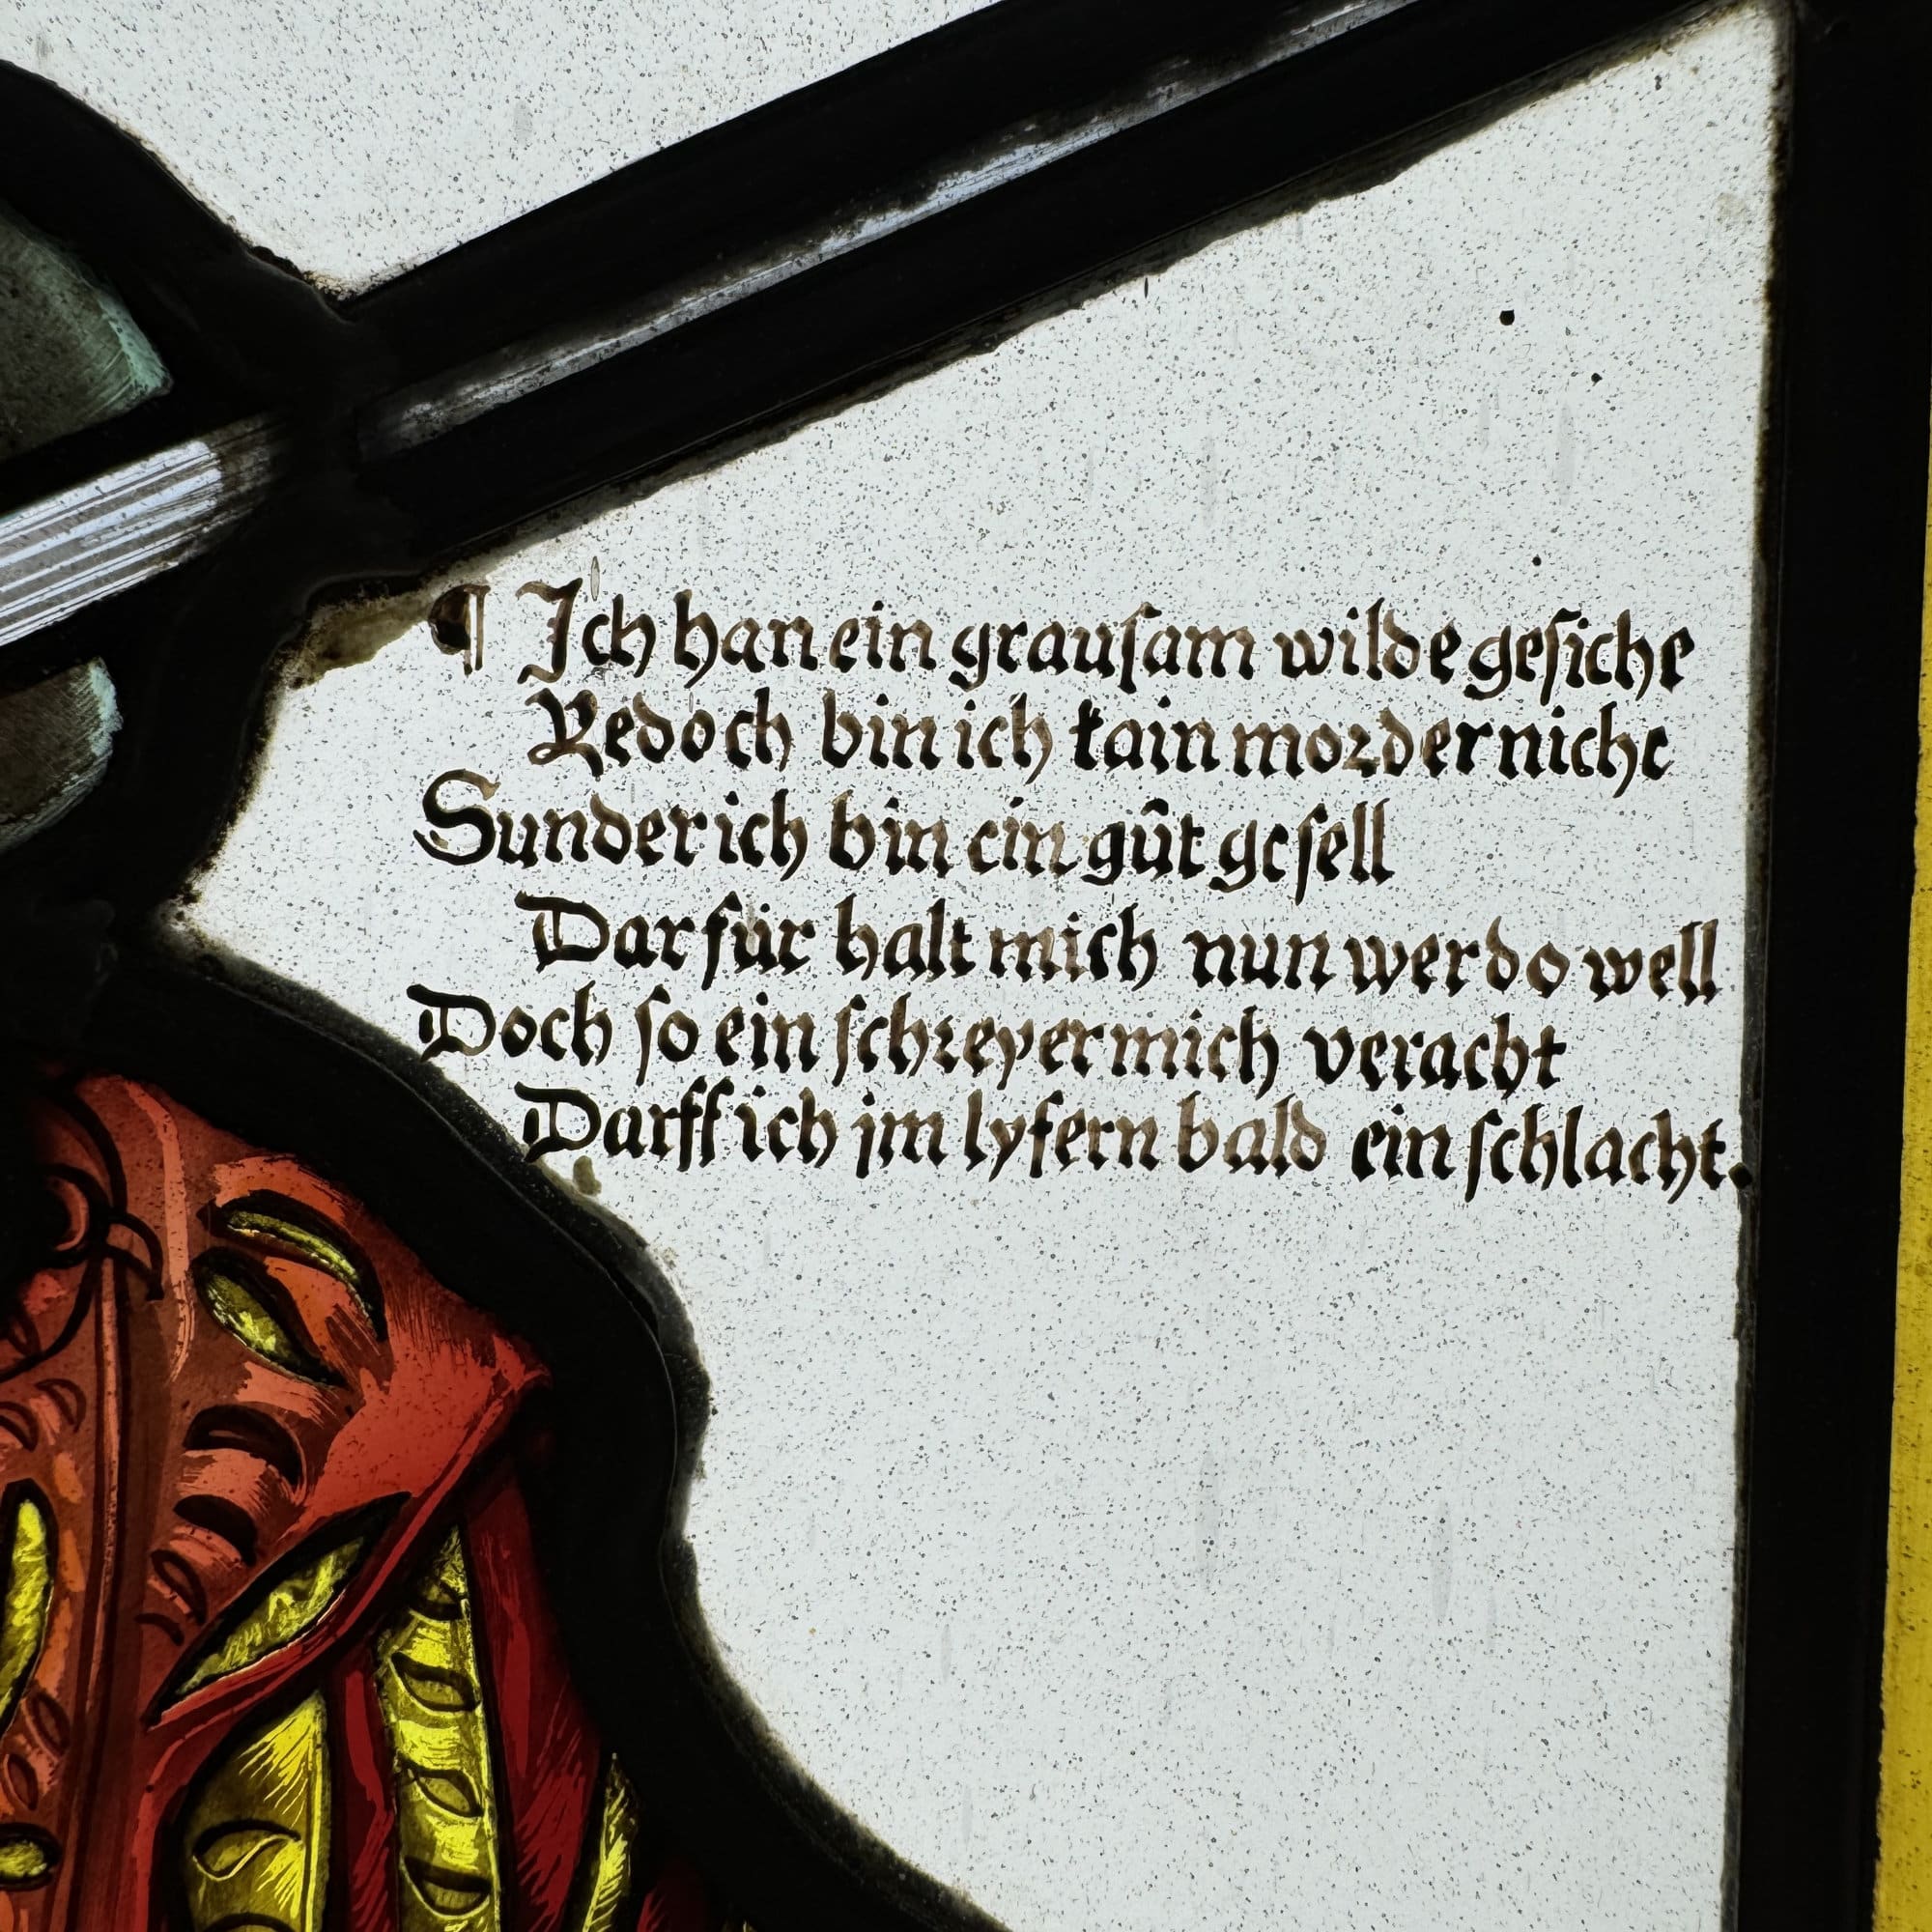 ¶ Ich han ein grausam wilde gesicht
Yedoch bin ich kain morder nicht
Sunder ich bin ein gût gesell
Darfür halt mich nun wer do well
Doch so ein schreyer mich veracht
Darff ich jm lyfern bald ein schlacht.